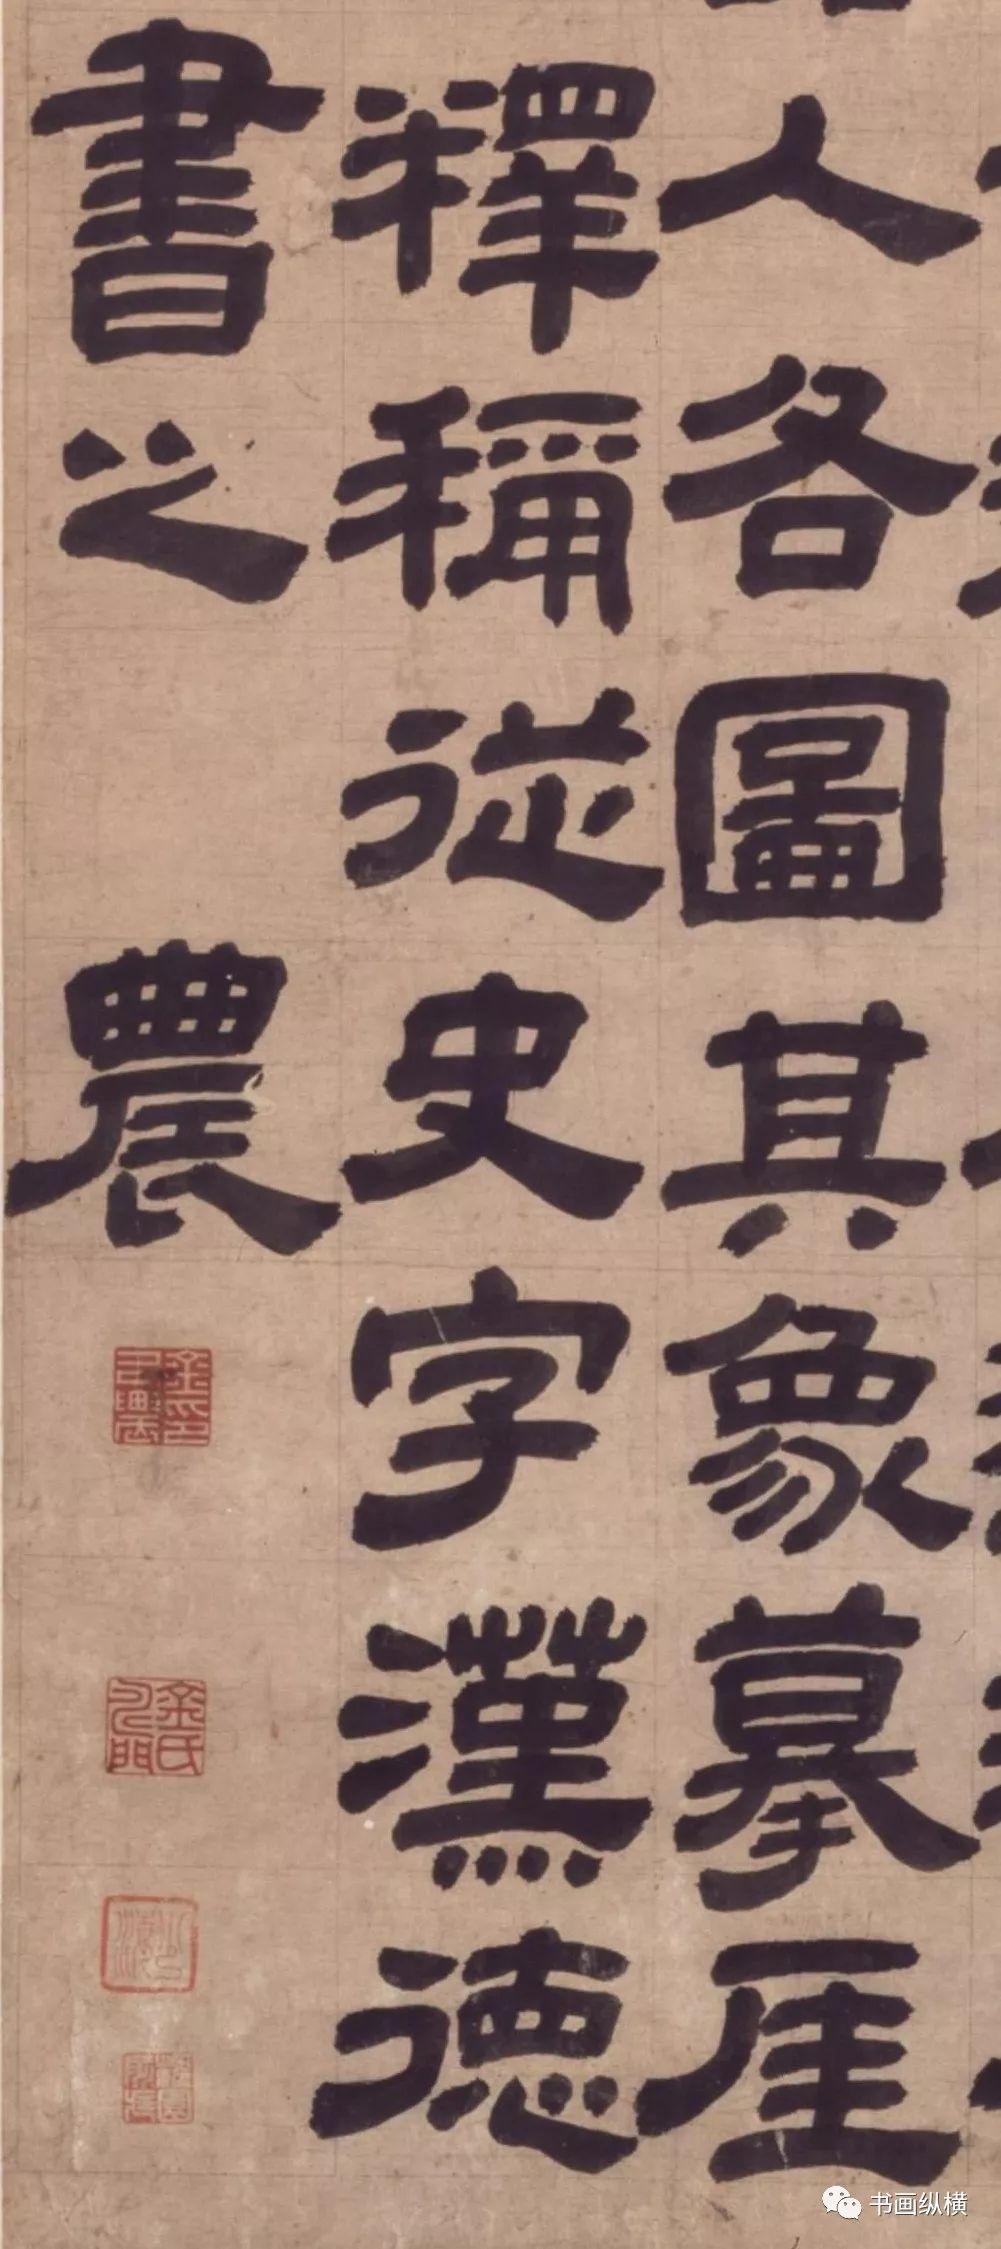 人各圖其象摹厓
釋稱從史字漢德
書之
農
书画纵横